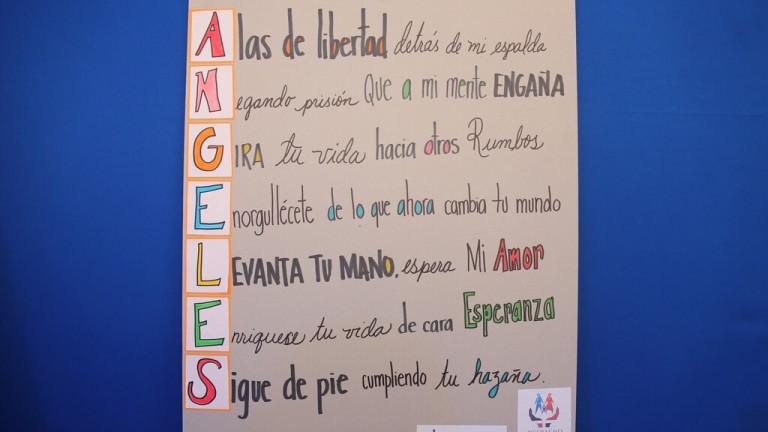 Alas de libertad detrás de mi espalda
Negando prisión Que a mi mente ENGAÑA
GIRA tu vida hacia otros Rumbos
Enorgullécete de lo que ahora cambia tu mundo
LEVANTA TU MANO, espera Mi Amor
Enriquese tu vida de cara Esperanza
Sigue de pie cumpliendo tu hazaña.